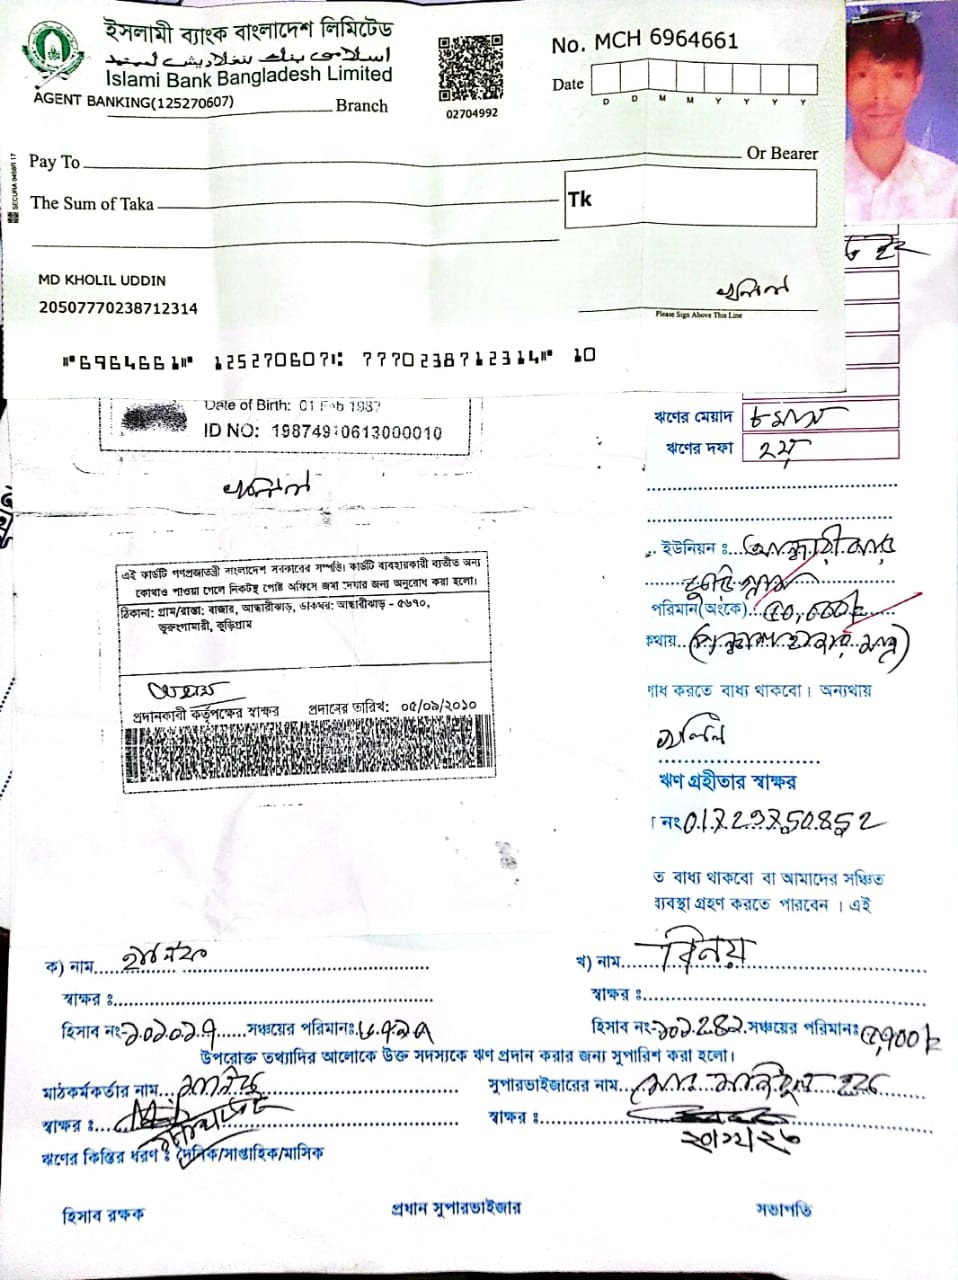 ইসলামী ব্যাংক বাংলাদেশ লিমিটেড
Islami Bank Bangladesh Limited
AGENT BANKING(125270607) Branch
02704992
No. MCH 6964661
Date
D D M M Y Y Y Y
Pay To Or Bearer
The Sum of Taka
Tk
MD KHOLIL UDDIN
20507770238712314
খলিল
Please Sign Above This Line
6964661 125270607 7770238712314 10
Date of Birth: 01 Feb 1987
ID NO: 19874910613000010
খলিল
ঋণের মেয়াদ
ঋণের দফা ২য়
এই কার্ডটি গণপ্রজাতন্ত্রী বাংলাদেশ সরকারের সম্পত্তি। কার্ডটি ব্যবহারকারী ব্যতীত অন্য
কোথাও পাওয়া গেলে নিকটস্থ পোষ্ট অফিসে জমা দেবার জন্য অনুরোধ করা হলো।
ঠিকানা: গ্রাম/রাস্তা: বাজার, আন্ধারীঝাড়, ডাকঘর: আন্ধারীঝাড় - ৫৬৭০,
ভূরুংগামারী, কুড়িগ্রাম
প্রদানকারী কর্তৃপক্ষের স্বাক্ষর প্রদানের তারিখ: ০৫/০৯/২০১০
ইউনিয়ন ঃ আন্ধারীঝাড়
পরিমান(অংকে) ৫০,০০০/
কথায় (পঞ্চাশ হাজার মাত্র)
শোধ করতে বাধ্য থাকবো। অন্যথায়
খলিল
ঋণ গ্রহীতার স্বাক্ষর
নং 01723750852
ত বাধ্য থাকবো বা আমাদের সঞ্চিত
ব্যবস্থা গ্রহণ করতে পারবেন । এই
ক) নাম খ) নাম বিনয়
স্বাক্ষর ঃ স্বাক্ষর ঃ
হিসাব নং সঞ্চয়ের পরিমানঃ হিসাব নং সঞ্চয়ের পরিমানঃ
উপরোক্ত তথ্যাদির আলোকে উক্ত সদস্যকে ঋণ প্রদান করার জন্য সুপারিশ করা হলো।
মাঠকর্মকর্তার নাম সুপারভাইজারের নাম
স্বাক্ষর ঃ স্বাক্ষর ঃ
ঋণের কিস্তির ধরণ ঃ দৈনিক/সাপ্তাহিক/মাসিক
হিসাব রক্ষক প্রধান সুপারভাইজার সভাপতি